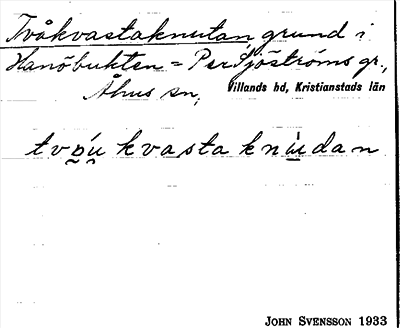 Tvåkvastaknutan, grund i
Hanöbukten = Per Sjöströms gr.,
Åhus sn, Villands hd, Kristianstads län
tvo̯ú̯ kvasta knu̇dan
JOHN SVENSSON 1933